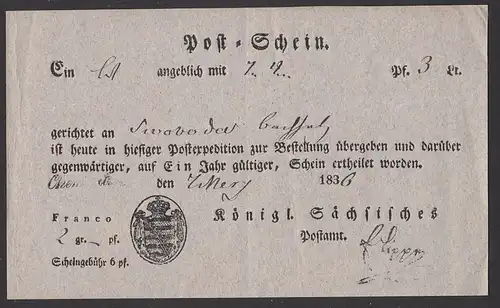 Post-Schein.
Ein angeblich mit Pf. 3 Lt.
gerichtet an
ist heute in hiesiger Postexpedition zur Bestellung übergeben und darüber
gegenwärtiger, auf Ein Jahr gültiger, Schein ertheilet worden.
den 1836
Franco Königl. Sächsisches
2 gr. pf. Postamt.
Scheingebühr 6 pf.